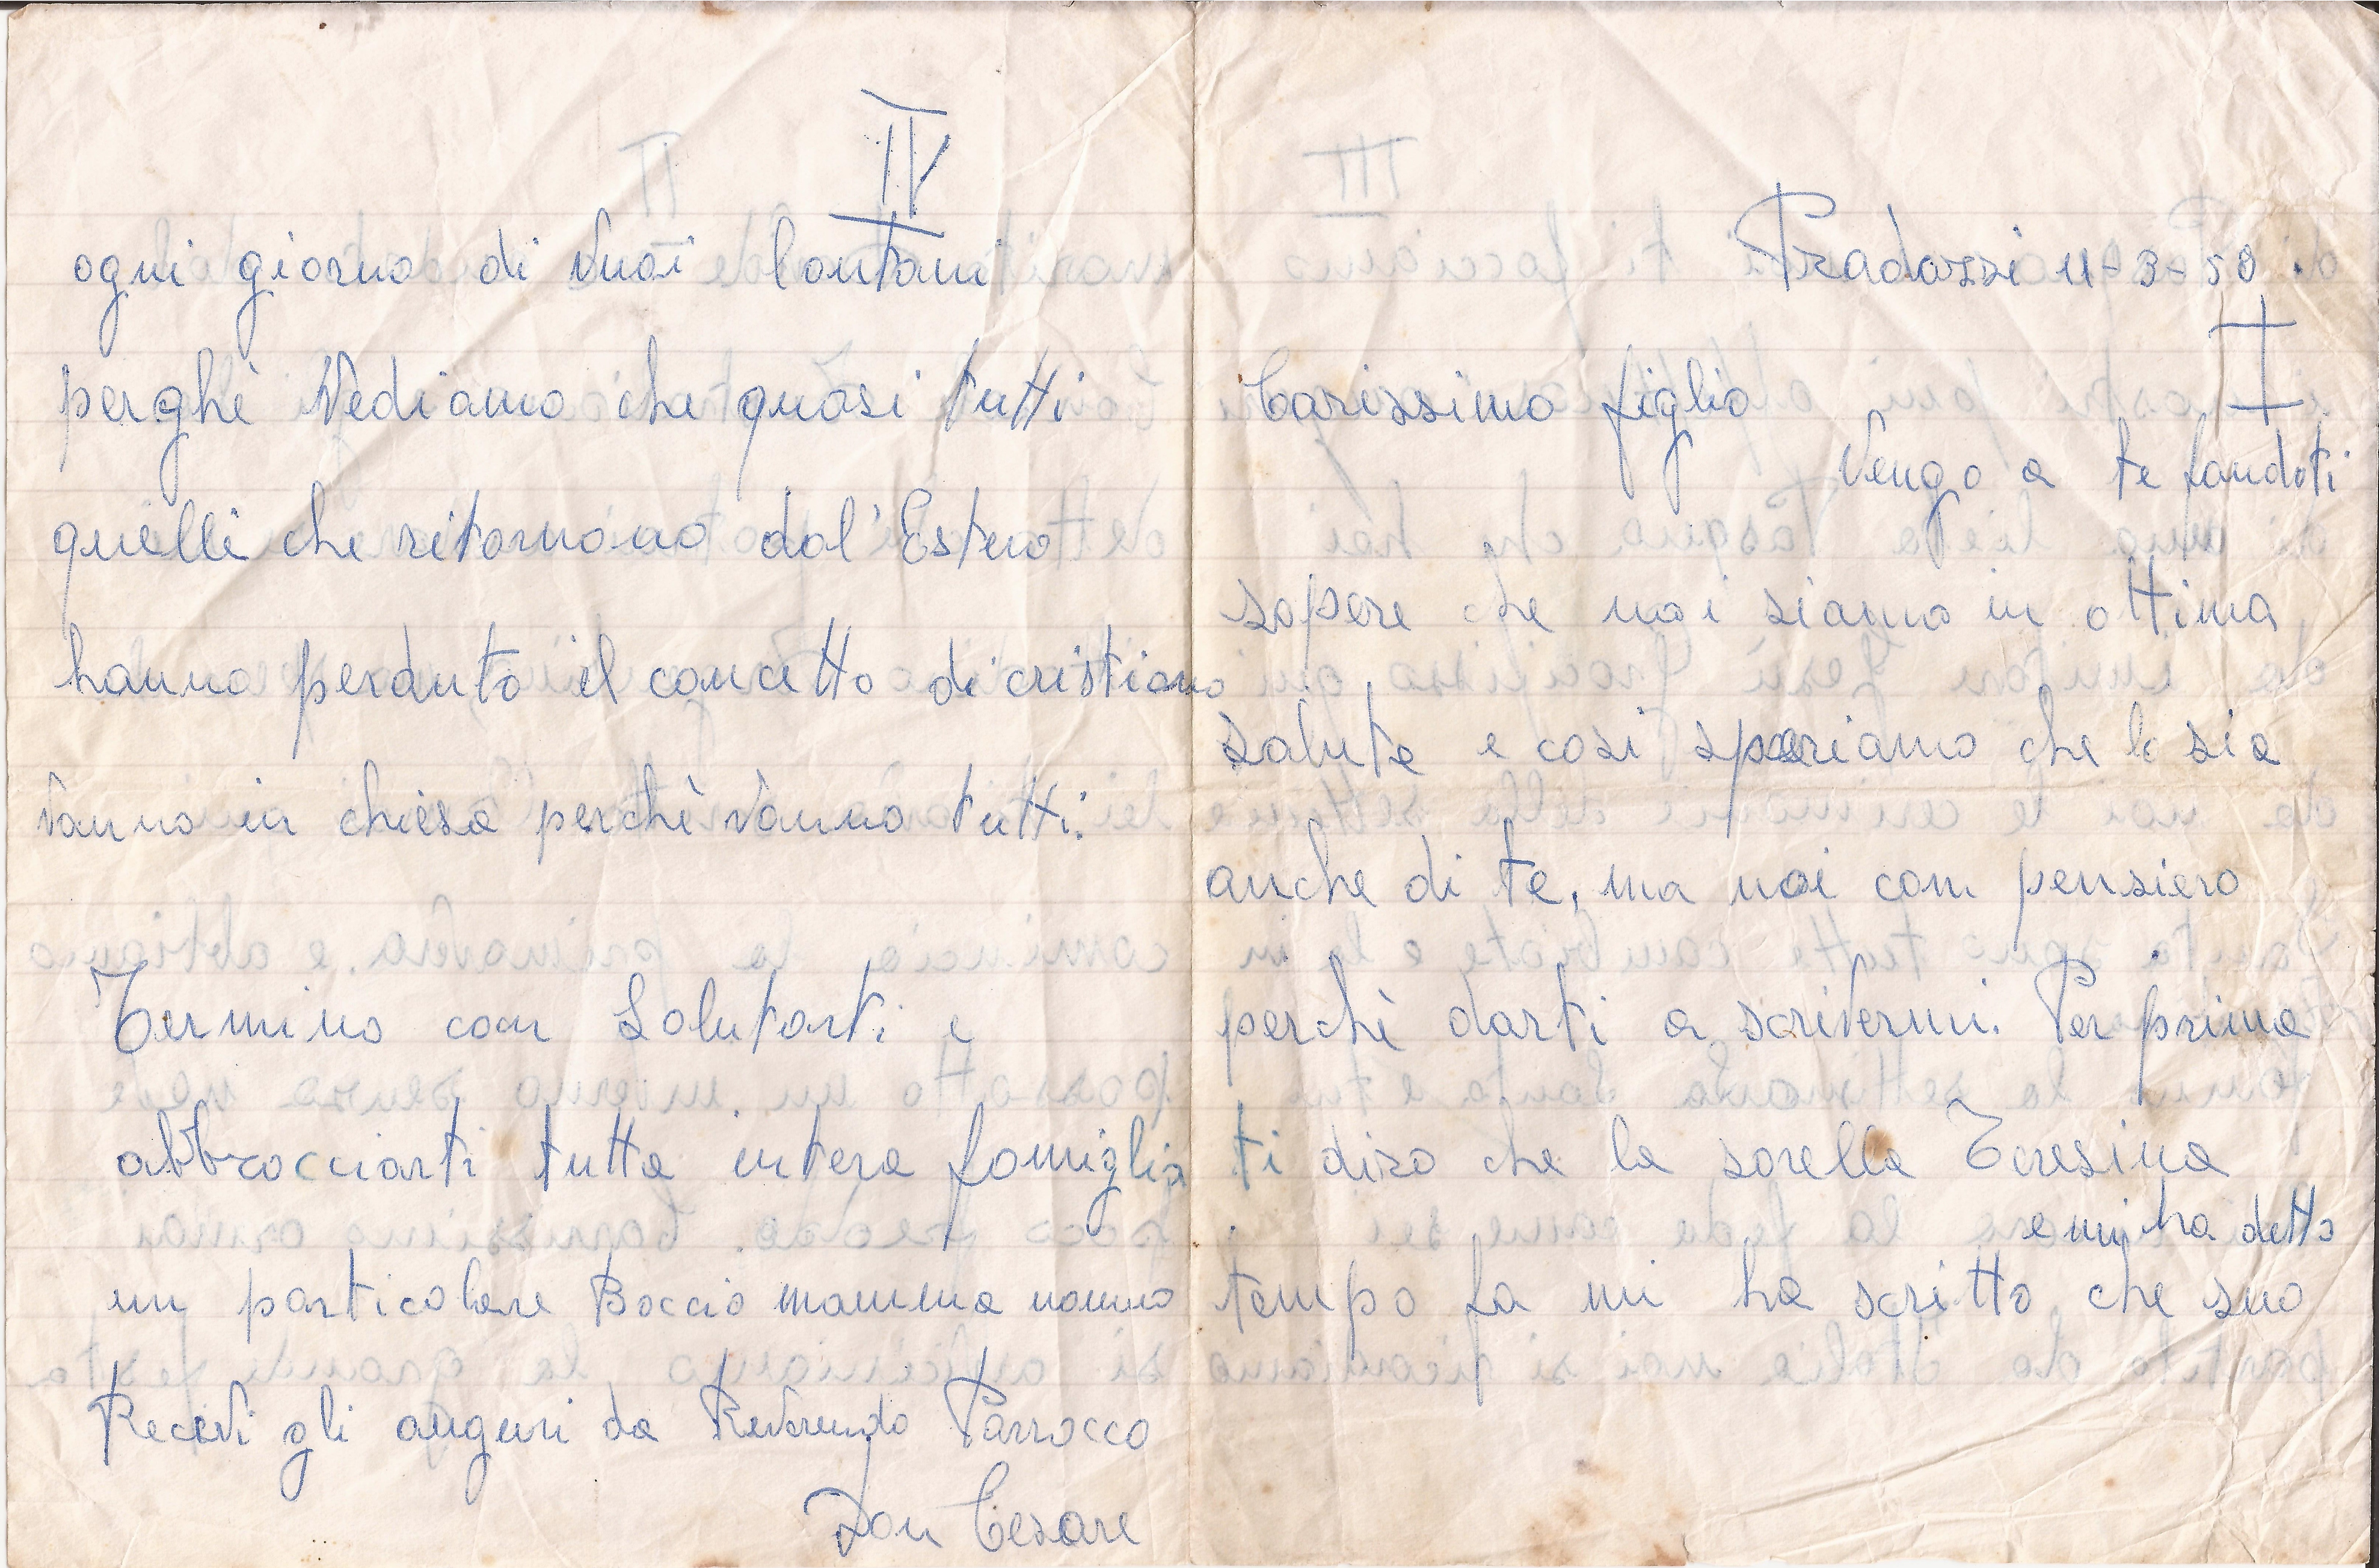 IV
ogni giorno di Vuoi lontani
perghè Vediamo che quasi tutti
quelli che ritornano dal'Estero
hanno perduto il concetto di cristiano
Vanno in chiesa perchè Vanno tutti.
Termino con Salutarti e
abbracciarti tutta intera famiglia
un particolare Baccio mamma nonno
Recevi gli auguri da Reverendo Parrocco
Don Cesare
Pradazzi 11-3-58.
Carissimo figlio
Vengo a te
sapere che noi siamo in ottima
salute e cosi speriamo che lo sia
anche di te, ma noi con pensiero
perchè darti a scriVermi. Per prima
ti diro che la sorella Teresina
e mi ha detto
tempo fa mi ha scritto che suo